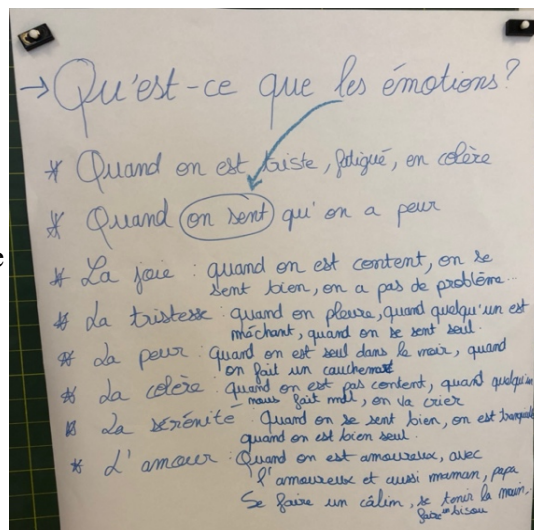 e
→ Qu'est-ce que les émotions?
* Quand on est triste, fatigué, en colère
* Quand on sent qu'on a peur
* La joie : quand on est content, on se
sent bien, on a pas de problème...
* La tristesse : quand on pleure, quand quelqu'un est
méchant, quand on se sent seul.
* La peur : quand on est seul dans le noir, quand
on fait un cauchemar
* La colère : quand on est pas content, quand quelqu'un
nous fait mal, on va crier
* La sérénité : Quand on se sent bien, on est tranquille
quand on est bien seul.
* L'amour : Quand on est amoureux, avec
l'amoureux et aussi maman, papa
Se faire un câlin, se tenir la main,
faire un bisou